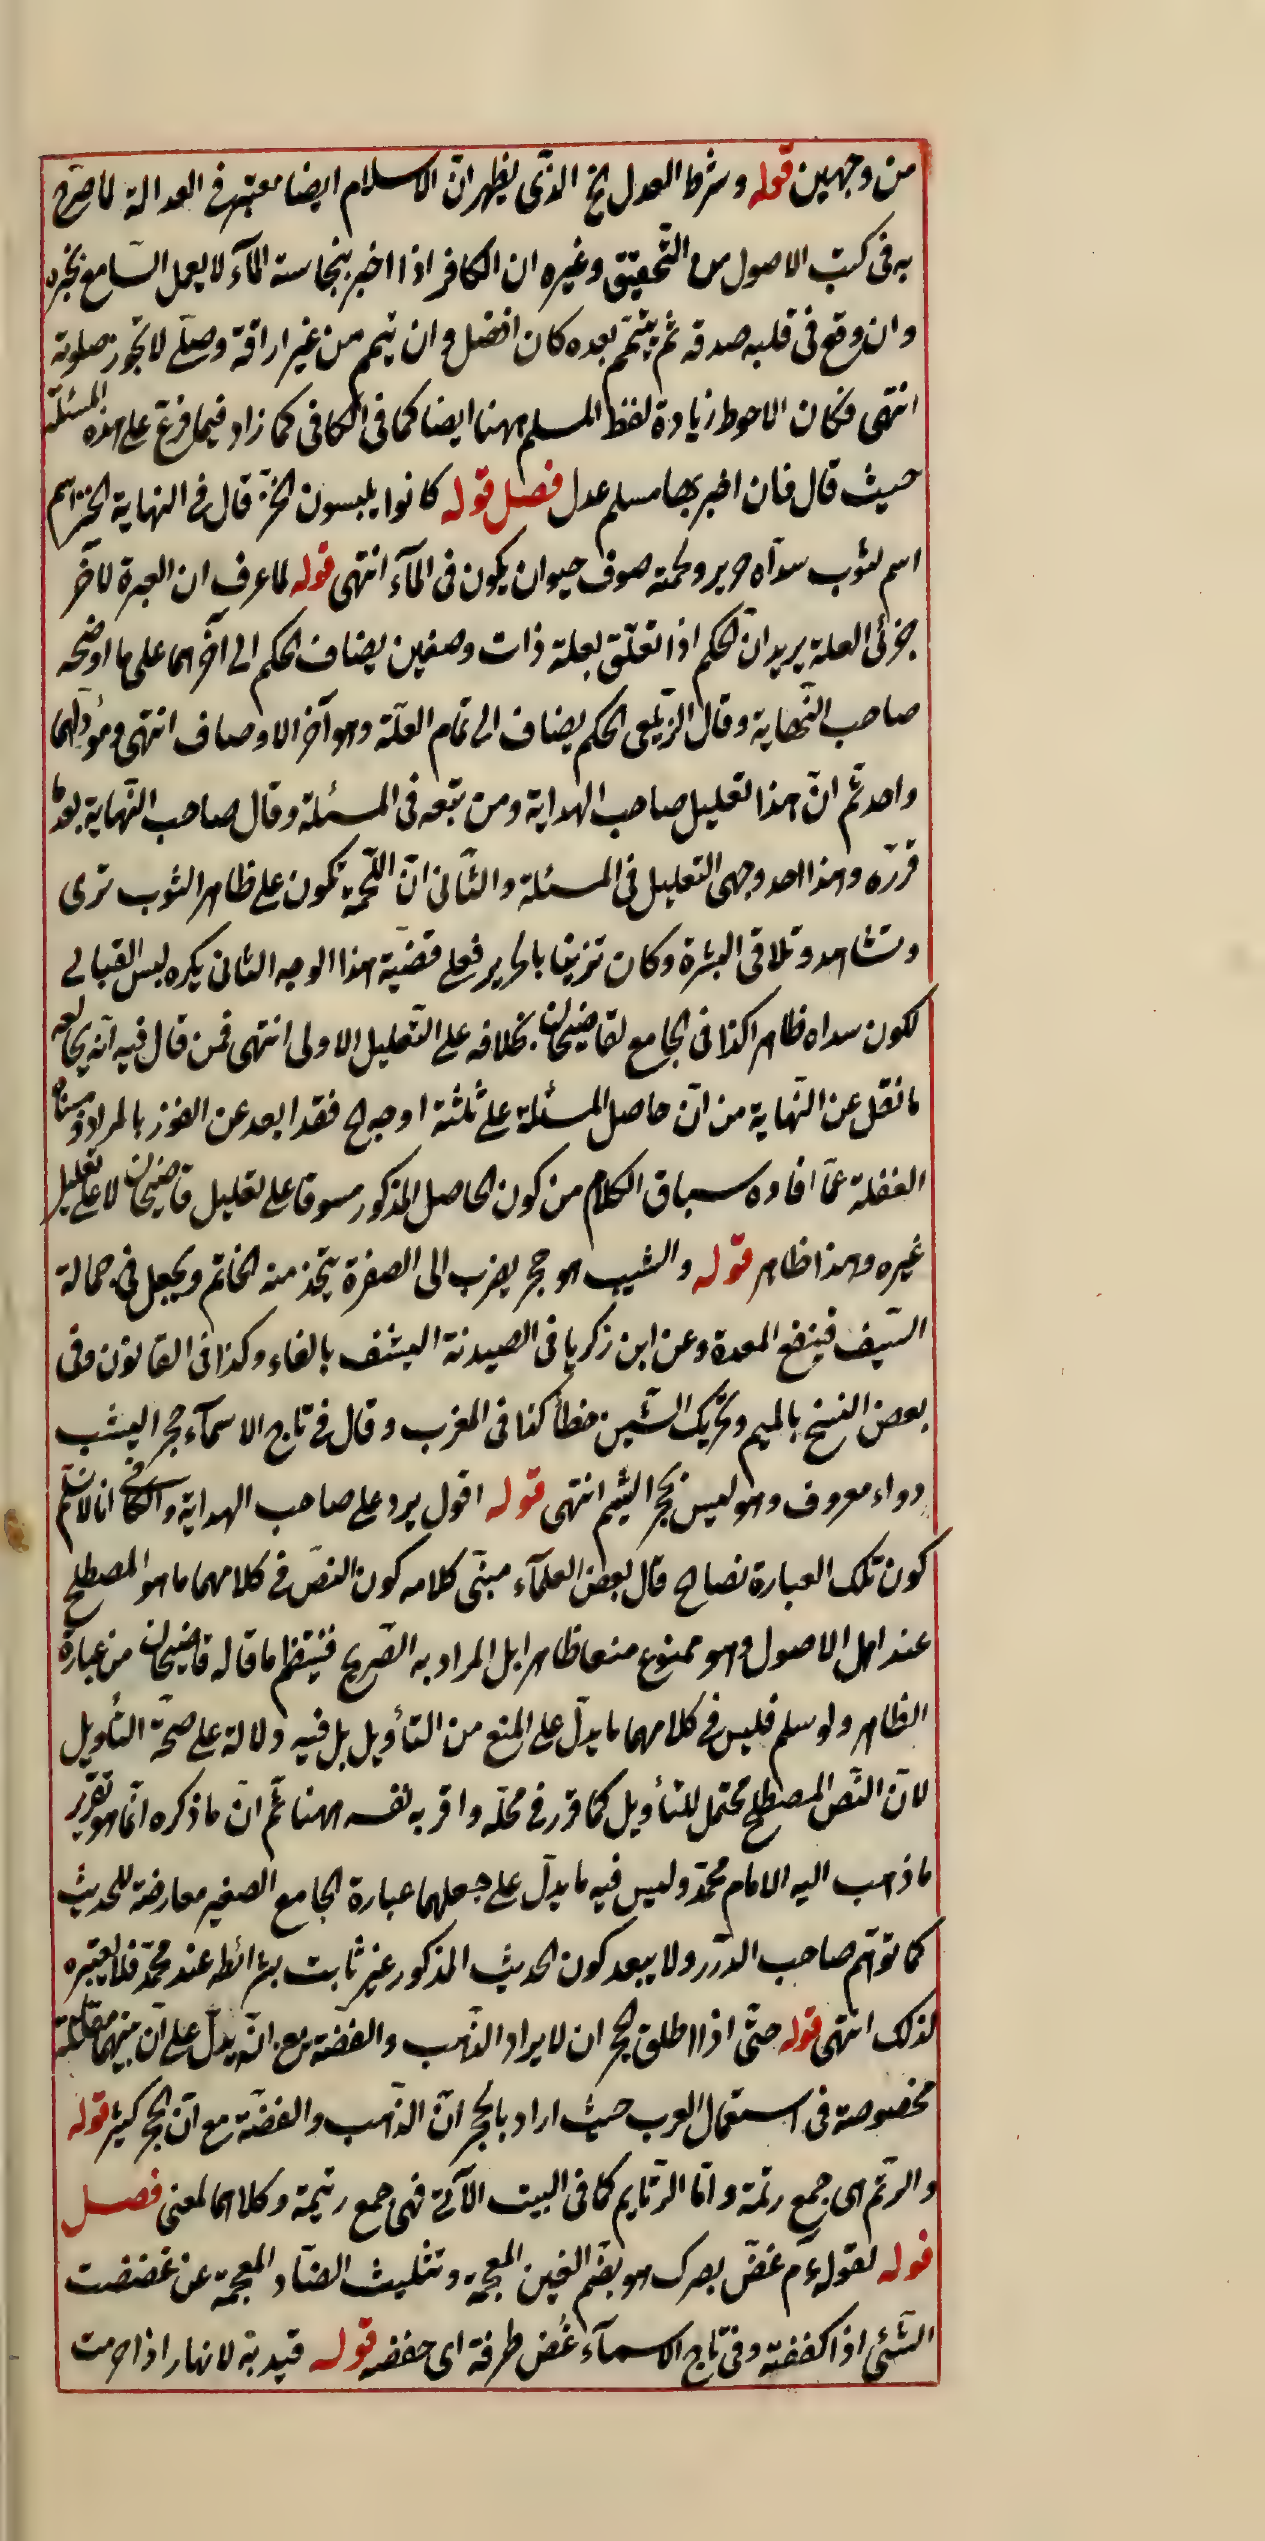 من وجهين قوله وشرط العدل الخ الذى يظهر ان الاسلام ايضا معتبر فى العدالة لما صرح
به فى كتب الاصول من التحقيق وغيره ان الكافر اذا اخبر بنجاسة المآء لا يعمل السامع بخبره
وان وقع فى قلبه صدقه ثم يتيمم بعده كان افضل وان تيمم من غير اراقة وصلى لا تجوز صلوته
انتهى فكان الاحوط زيادة لفظ المسلم ههنا ايضا كما فى الكافى كما زاد فيما فرع على هذه المسئلة
حيث قال فان اخبر بها مسلم عدل فصل قوله كانوا يلبسون الخز قال فى النهاية الخز اسم
اسم لثوب سداه حرير ولحمته صوف حيوان يكون فى المآء انتهى قوله لما عرف ان العبرة لآخر
جزئى العلة يريد ان الحكم اذا تعلق بعلة ذات وصفين يضاف الحكم الى آخرهما على ما اوضحه
صاحب النهاية وقال الزيلعى الحكم يضاف الى تمام العلة وهو آخر الاوصاف انتهى ومؤداهما
واحد ثم ان هذا تعليل صاحب الهداية ومن تبعه فى المسئلة وقال صاحب النهاية بعد ما
قرره وهذا احد وجهى التعليل فى المسئلة والثانى ان اللحمة تكون على ظاهر الثوب ترى
وتشاهد وتلاقى البشرة وكان تزينا بالحرير فعلى قضية هذا الوجه الثانى يكره لبس القبالى
لكون سداه ظاهرا كذا فى الجامع لقاضيخان بخلافه على التعليل الاولى انتهى فمن قال فيه انه يخالفه
ما نقل عن النهاية من ان حاصل المسئلة على ثلثة اوجه الخ فقد ابعد عن الفوز بالمراد ومنشاه
الغفلة عما افاده سباق الكلام من كون الحاصل المذكور مسوقا على تعليل قاضيخان لا على تعليل
غيره وهذا ظاهر قوله والشيب هو حجر يضرب الى الصفرة يتخذ منه الخاتم ويجعل فى حمالة
السيف فينفع المعدة وعن ابن زكريا فى الصيدنة اليشف بالفاء وكذا فى القانون وفى
بعض النسخ بالميم وتحريك الشين خطأ كذا فى المغرب وقال فى تاج الاسمآء حجر اليشب
دواء معروف وهو ليس بحجر اليشم انتهى قوله اقول يرد على صاحب الهداية والكافى انا لا نسلم
كون تلك العبارة نصا الخ قال بعض العلمآء مبنى كلامه كون النص فى كلامهما ما هو المصطلح
عند اهل الاصول وهو ممنوع منعا ظاهرا بل المراد به الصريح فينتظم ما قاله قاضيخان من عبارة
الظاهر ولو سلم فليس فى كلامهما ما يدل على المنع من التأويل بل فيه دلالة على صحة التأويل
لان النص المصطلح محتمل للتأويل كما قرر فى محله واقر به نفسه ههنا ثم ان ما ذكره انما هو تقرير
ما ذهب اليه الامام محمد وليس فيه ما يدل على جعلهما عبارة الجامع الصغير معارضة للحديث
كما توهم صاحب الدرر ولا يبعد كون الحديث المذكور غير ثابت بشرائطه عند محمد فلا يعتبره
لذلك انتهى قوله حتى اذا اطلق الحجر ان لا يراد الذهب والفضة مع انه يدل على ان بينهما مقابلة
مخصوصة فى استعمال العرب حيث اراد بالحجر ان الذهب والفضة مع ان الحجر كثير قوله
والرتم اى جمع رتمة واما الرتايم كما فى البيت الآتى فهى جمع رتيمة وكلاهما لمعنى فصل
قوله لقوله عم غض بصرك هو بضم الغين المعجمة وتثليث الضاد المعجمة عن غضضت
الشئى اذا كففته وفى تاج الاسمآء غض طرفه اى خفضه قوله قيد به لانها راذا حرمت